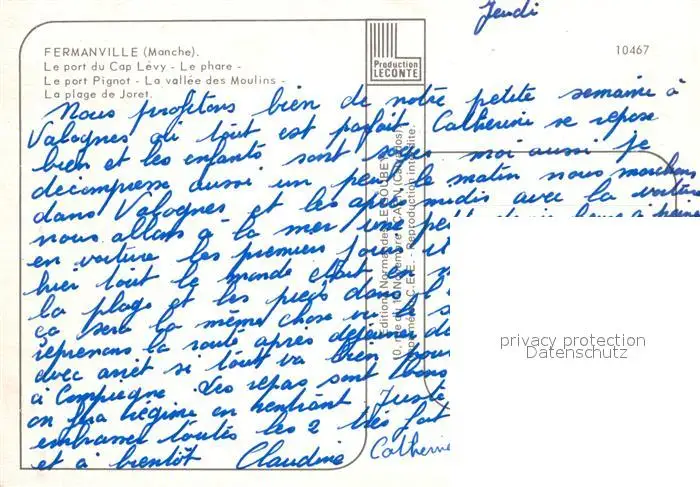 Jeudi
FERMANVILLE (Manche).
Le port du Cap Lévy - Le phare -
Le port Pignot - La vallée des Moulins -
La plage de Joret.
Production
LECONTE
10467
Nous profitons bien de notre petite semaine à
Valognes où tout est parfait Catherine se repose
bien et les enfants sont sages moi aussi je
décompresse aussi un peu le matin nous marchons
dans Valognes et les après midis avec la voiture
nous allons à la mer une pe
en voiture les premiers jours
hier tout le monde était en
la plage et les pieds dans l'
ça sera la même chose
reprenons la route après déjeuner
avec arrêt si tout va bien pour
à Compiègne. Les repas sont bons
on fera régime en rentrant Juste
embrasse toutes les 2 très fort
et à bientôt Claudine Catherine
Editions Normandes LE GOUBEY
10, rue du 11 Novembre - CAEN (Calvados)
C.E.E. - Reproduction interdite.
privacy protection
Datenschutz